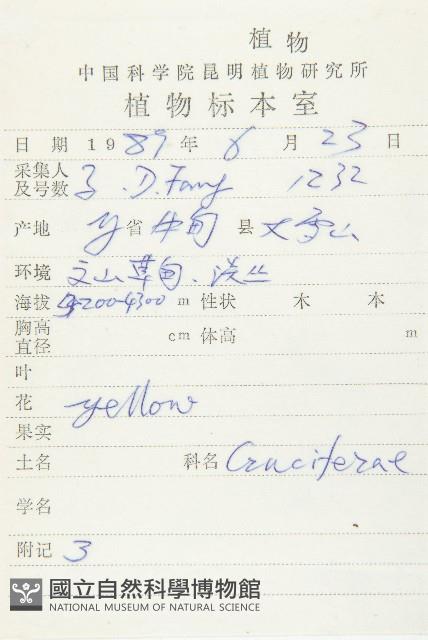 植物
中国科学院昆明植物研究所
植物标本室
日期 1989年6月23日
采集人及号数 D. Fang 1232
产地 省 中甸 县 大雪山
环境 草甸、
海拔 4200-4300 m 性状 木 本
胸高直径 cm 体高 m
叶
花 yellow
果实
土名 科名 Cruciferae
学名
附记 3
國立自然科學博物館
NATIONAL MUSEUM OF NATURAL SCIENCE